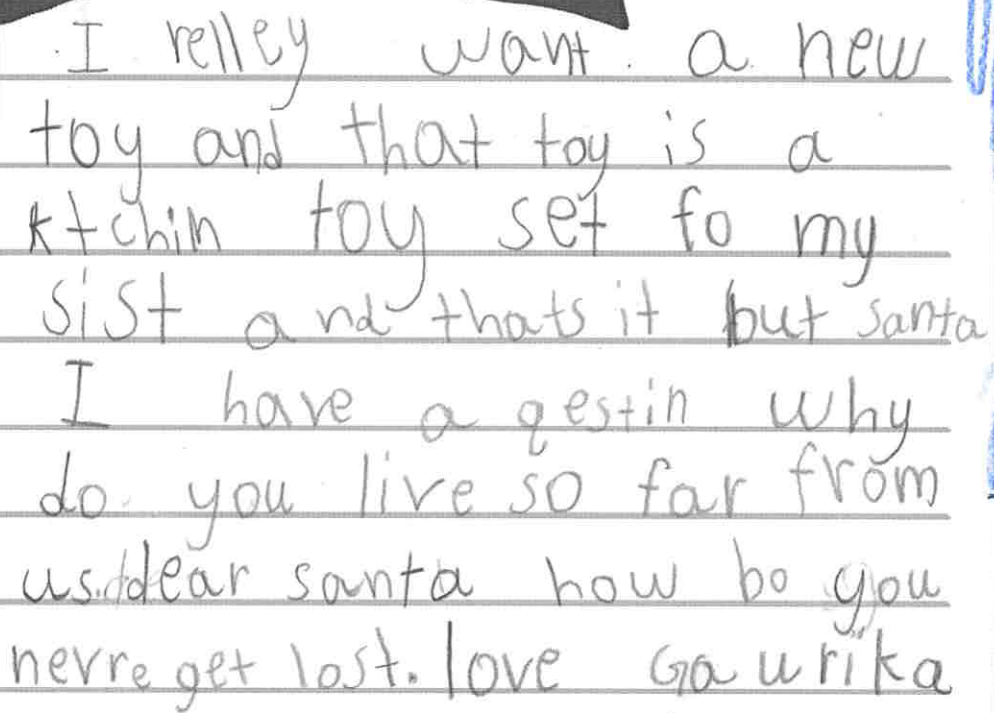 I relley want a new
toy and that toy is a
ktchin toy set fo my
sist and thats it but santa
I have a qestin why
do you live so far from
us. dear santa how bo you
nevre get lost. love Gaurika